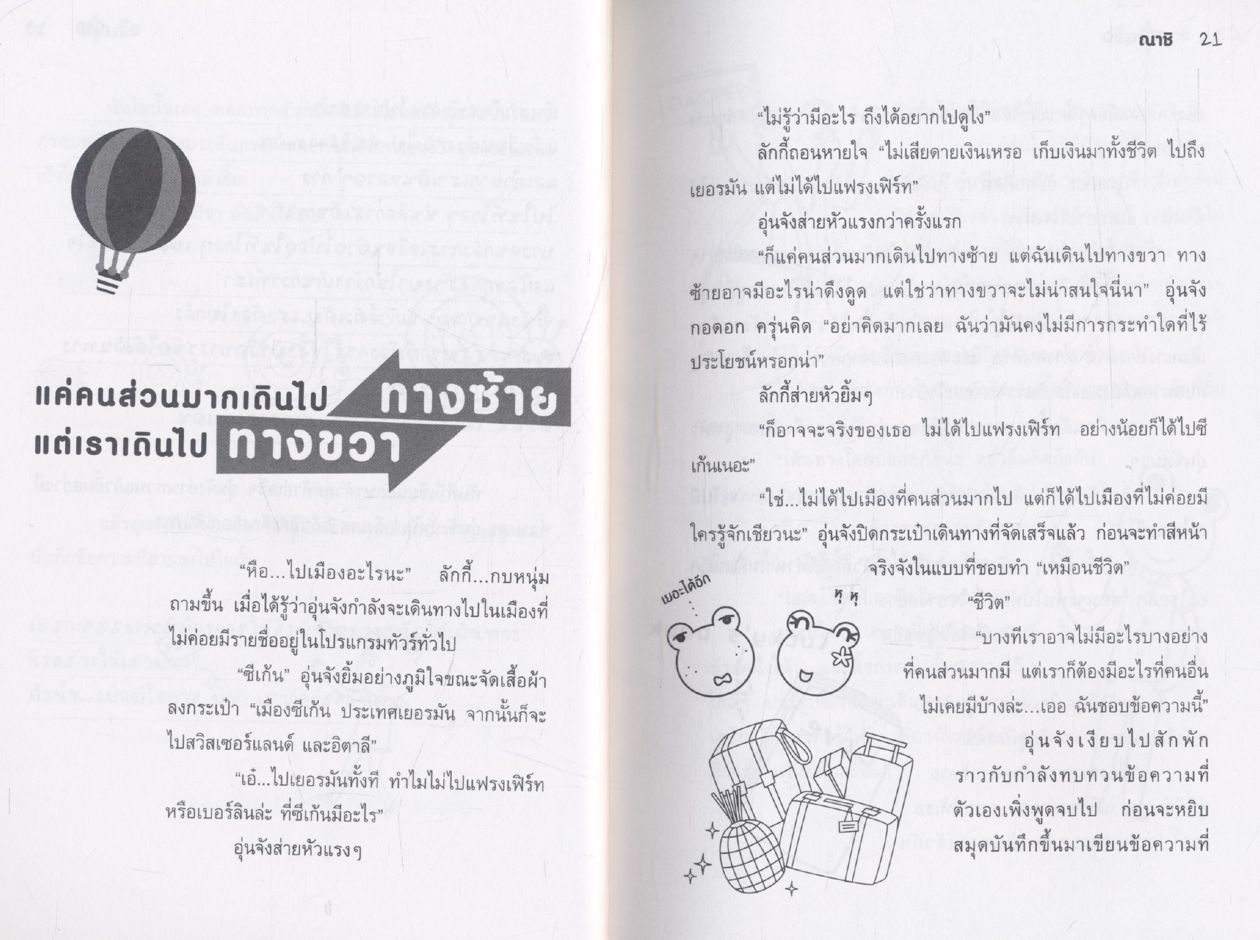 แค่คนส่วนมากเดินไป ทางซ้าย
แต่เราเดินไป ทางขวา
“หือ...ไปเมืองอะไรนะ” ลักกี้...กบหนุ่ม
ถามขึ้น เมื่อได้รู้ว่าอุ่นจังกำลังจะเดินทางไปในเมืองที่
ไม่ค่อยมีรายชื่ออยู่ในโปรแกรมทัวร์ทั่วไป
“ซีเก้น” อุ่นจังยิ้มอย่างภูมิใจขณะจัดเสื้อผ้า
ลงกระเป๋า “เมืองซีเก้น ประเทศเยอรมัน จากนั้นก็จะ
ไปสวิสเซอร์แลนด์ และอิตาลี”
“เอ๋...ไปเยอรมันทั้งที ทำไมไม่ไปแฟรงเฟิร์ท
หรือเบอร์ลินล่ะ ที่ซีเก้นมีอะไร”
อุ่นจังส่ายหัวแรงๆ
ณาชิ 21
“ไม่รู้ว่ามีอะไร ถึงได้อยากไปดูไง”
ลักกี้ถอนหายใจ “ไม่เสียดายเงินเหรอ เก็บเงินมาทั้งชีวิต ไปถึง
เยอรมัน แต่ไม่ได้ไปแฟรงเฟิร์ท”
อุ่นจังส่ายหัวแรงกว่าครั้งแรก
“ก็แค่คนส่วนมากเดินไปทางซ้าย แต่ฉันเดินไปทางขวา ทาง
ซ้ายอาจมีอะไรน่าดึงดูด แต่ใช่ว่าทางขวาจะไม่น่าสนใจนี่นา” อุ่นจัง
กอดอก ครุ่นคิด “อย่าคิดมากเลย ฉันว่ามันคงไม่มีการกระทำใดที่ไร้
ประโยชน์หรอกน่า”
ลักกี้ส่ายหัวยิ้มๆ
“ก็อาจจะจริงของเธอ ไม่ได้ไปแฟรงเฟิร์ท อย่างน้อยก็ได้ไปซี
เก้นเนอะ”
“ใช่...ไม่ได้ไปเมืองที่คนส่วนมากไป แต่ก็ได้ไปเมืองที่ไม่ค่อยมี
ใครรู้จักเชียวนะ” อุ่นจังปิดกระเป๋าเดินทางที่จัดเสร็จแล้ว ก่อนจะทำสีหน้า
จริงจังในแบบที่ชอบทำ “เหมือนชีวิต”
“ชีวิต”
“บางทีเราอาจไม่มีอะไรบางอย่าง
ที่คนส่วนมากมี แต่เราก็ต้องมีอะไรที่คนอื่น
ไม่เคยมีบ้างล่ะ...เออ ฉันชอบข้อความนี้”
อุ่นจังเงียบไปสักพัก
ราวกับกำลังทบทวนข้อความที่
ตัวเองเพิ่งพูดจบไป ก่อนจะหยิบ
สมุดบันทึกขึ้นมาเขียนข้อความที่
เยอะได้อีก
หุ หุ